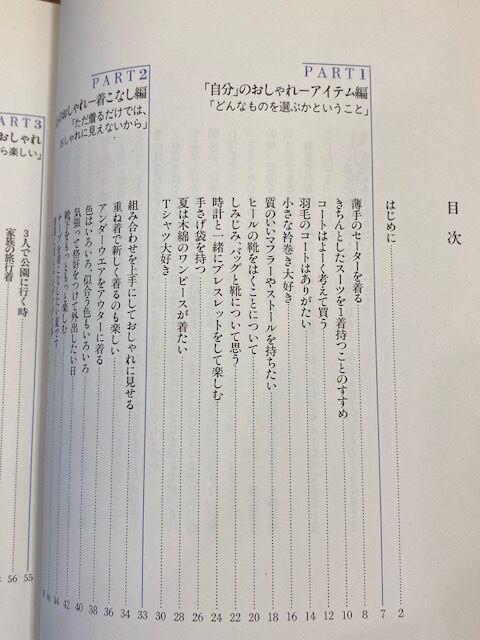 目次
はじめに 2
PART1
「自分」のおしゃれーアイテム編
「どんなものを選ぶかということ」 7
薄手のセーターを着る 8
きちんとしたスーツを1着持つことのすすめ 10
コートはよーく考えて買う 12
羽毛のコートはありがたい 14
小さな衿巻き大好き 16
質のいいマフラーやストールを持ちたい 18
ヒールの靴をはくことについて 20
しみじみ、バッグと靴について思う 22
時計と一緒にブレスレットをして楽しむ 24
手さげ袋を持つ 26
夏は木綿のワンピースが着たい 28
Tシャツ大好き 30
PART2
のおしゃれー着こなし編
「ただ着るだけでは、
おしゃれに見えないから」 33
組み合わせを上手にしておしゃれに見せる 34
重ね着で新しく着るのも楽しい 36
アンダーウエアをアウターに着る 38
色はいろいろ、似合う色もいろいろ 40
気張って格好をつけて外出したい日 42
靴下をもっともっと楽しむ 44
46
PART3
おしゃれ
ら楽しい」
3人で公園に行く時 55
家族の旅行着 56